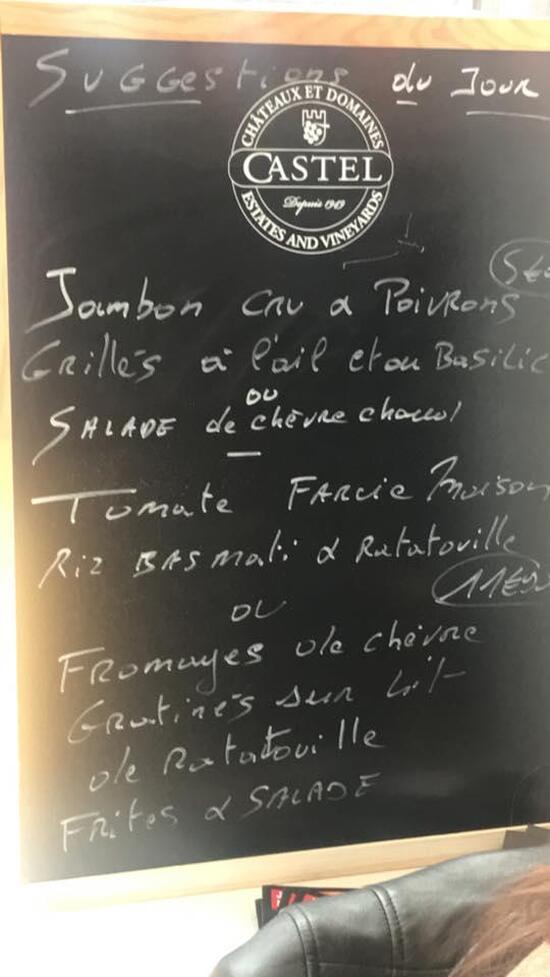 Suggestions du Jour
CHÂTEAUX ET DOMAINES
CASTEL
Depuis 1949
ESTATES AND VINEYARDS
5€
Jambon cru & Poivrons
Grillés à l'ail et au Basilic
ou
SALADE de chèvre chaud
Tomate FARCIE Maison
Riz BASMati & Ratatouille
11€
ou
FROMAGES de chèvre
Gratinés sur lit
de Ratatouille
FRites & SALADE